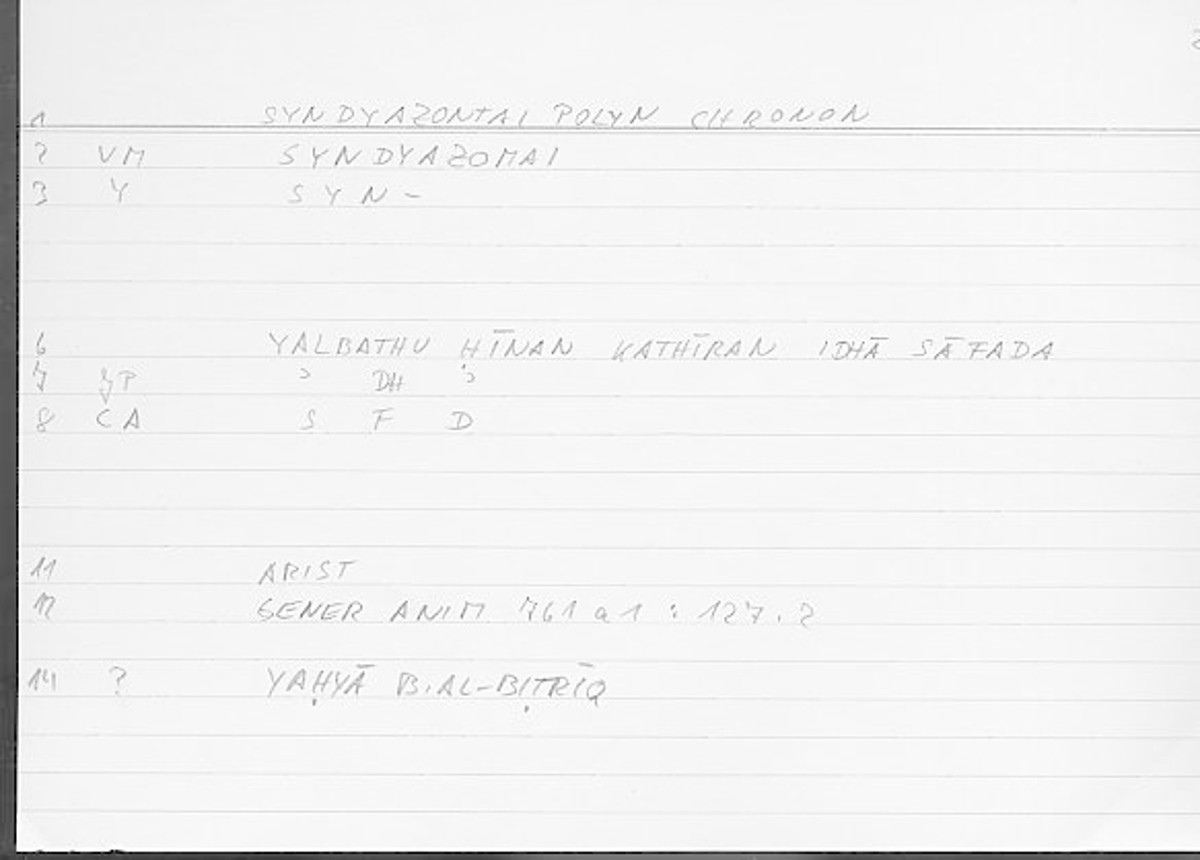 1 SYNDYAZONTAI POLYN CHRONON
2 VM SYNDYAZOMAI
3 Y SYN-
6 YALBATHU ḤĪNAN KATHĪRAN IDHĀ SĀFADA
7 JP ʾ DH ʾ
8 CA S F D
11 ARIST
12 GENER ANIM 761 a 1 : 127.2
14 ? YAḤYĀ B.AL-BIṬRĪQ